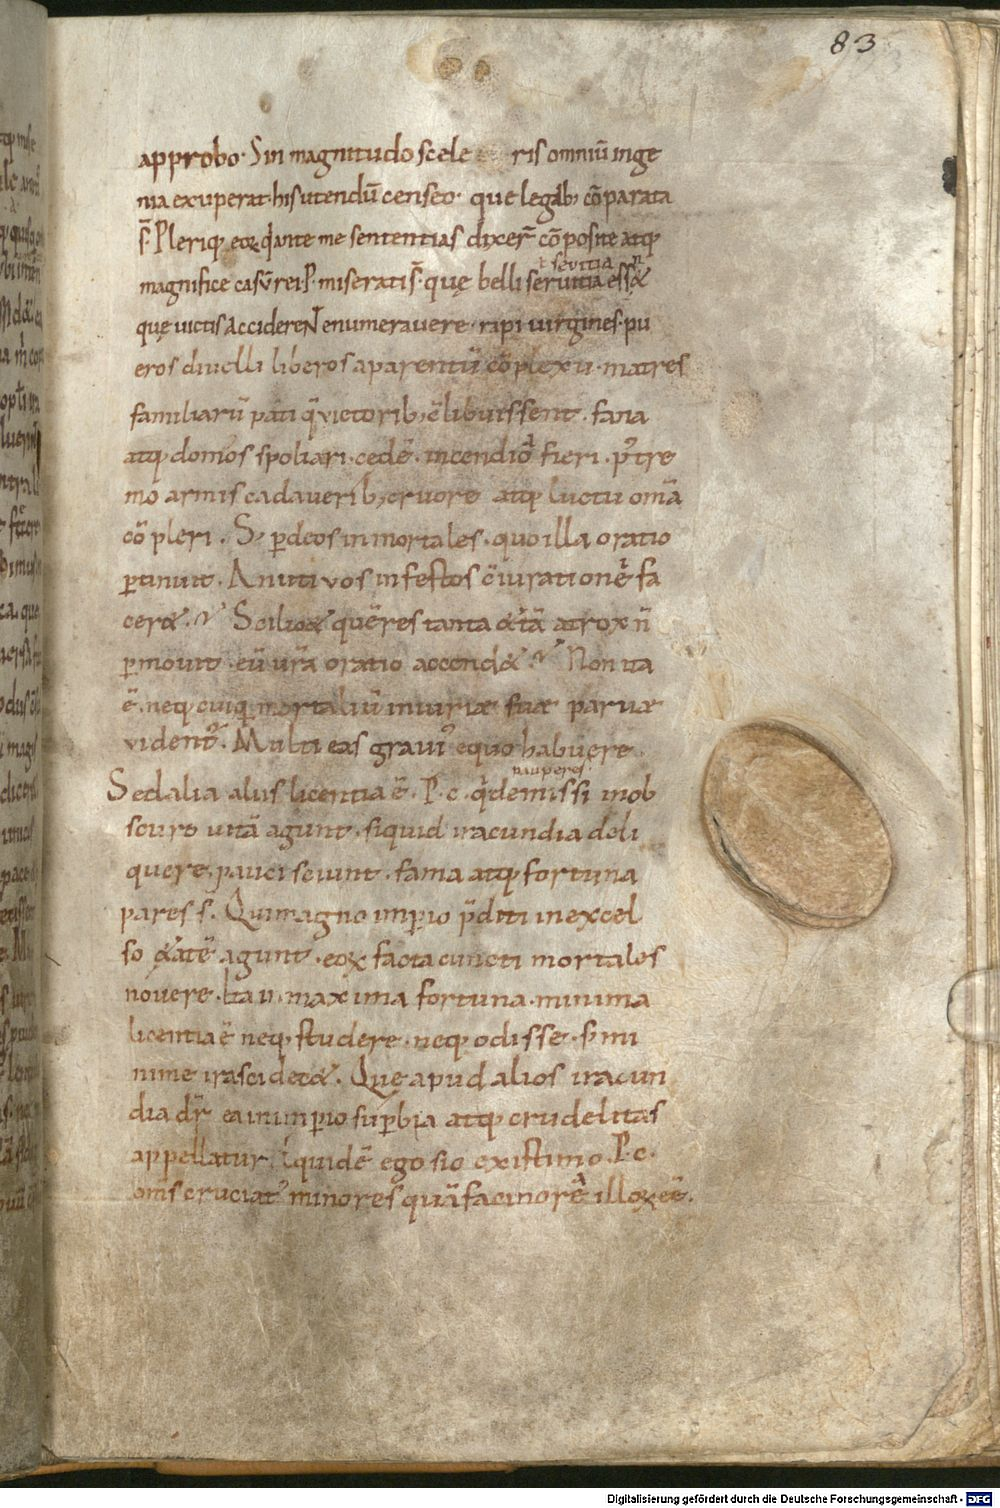 83
approbo. Sin magnitudo scele ris omniū inge
nia exuperat. his utendū censeo. que legib; cōparata
s̄. Pleriq; eoꝝ q̄ ante me sententias dixer̄ cōposite atq;
ł sevitia n
magnifice casū rei .P. miserati s̄. quę belli servitia ess&
quę victis accidereNt enumeravere. rapi virgines. pu
eros divelli liberos a parentū cōplexu. matres
familiarū pati q̄ victorib; c̄libuissent. fana
atq; domos spoliari. cedē. incendia fieri. p̄tre
mo armis cadaverib; cruore atq; luctu om̄a
cōpleri. S; ꝑ deos inmortales. quo illa oratio
ꝑtinuit. An uti vos infestos c̄iurationę fa
cer&. Scilic& quē res tanta & tā atrox n̄
ꝑmovit. eū vr̄a oratio accend&. Non ita
ē. neq; cuiq̄ mortaliū iniurię suę parvę
vident᷑. Multi eas gravi᷑ equo habuere.
pauperes
Sed alia aliis licentia ē. P. c. q̄ demissi in ob
scuro vitā agunt. siquid iracundia deli
quere. pauci sciunt. fama atq; fortuna
pares s̄. Qui magno imꝑio p̄diti in excel
so & atē agunt. eoꝝ facta cuncti mortales
novere. Ita in maxima fortuna. minima
licentia ē neq; studere. neq; odisse. s; mi
nime irasci dec&. Que apud alios iracun
dia dr̄ ea in imꝑio suꝑbia atq; crudelitas
appellatur. Equidē ego sic existimo. P. c.
om̄s cruciat᷑ minores quā facinora illoꝝ eē.
Digitalisierung gefördert durch die Deutsche Forschungsgemeinschaft - DFG